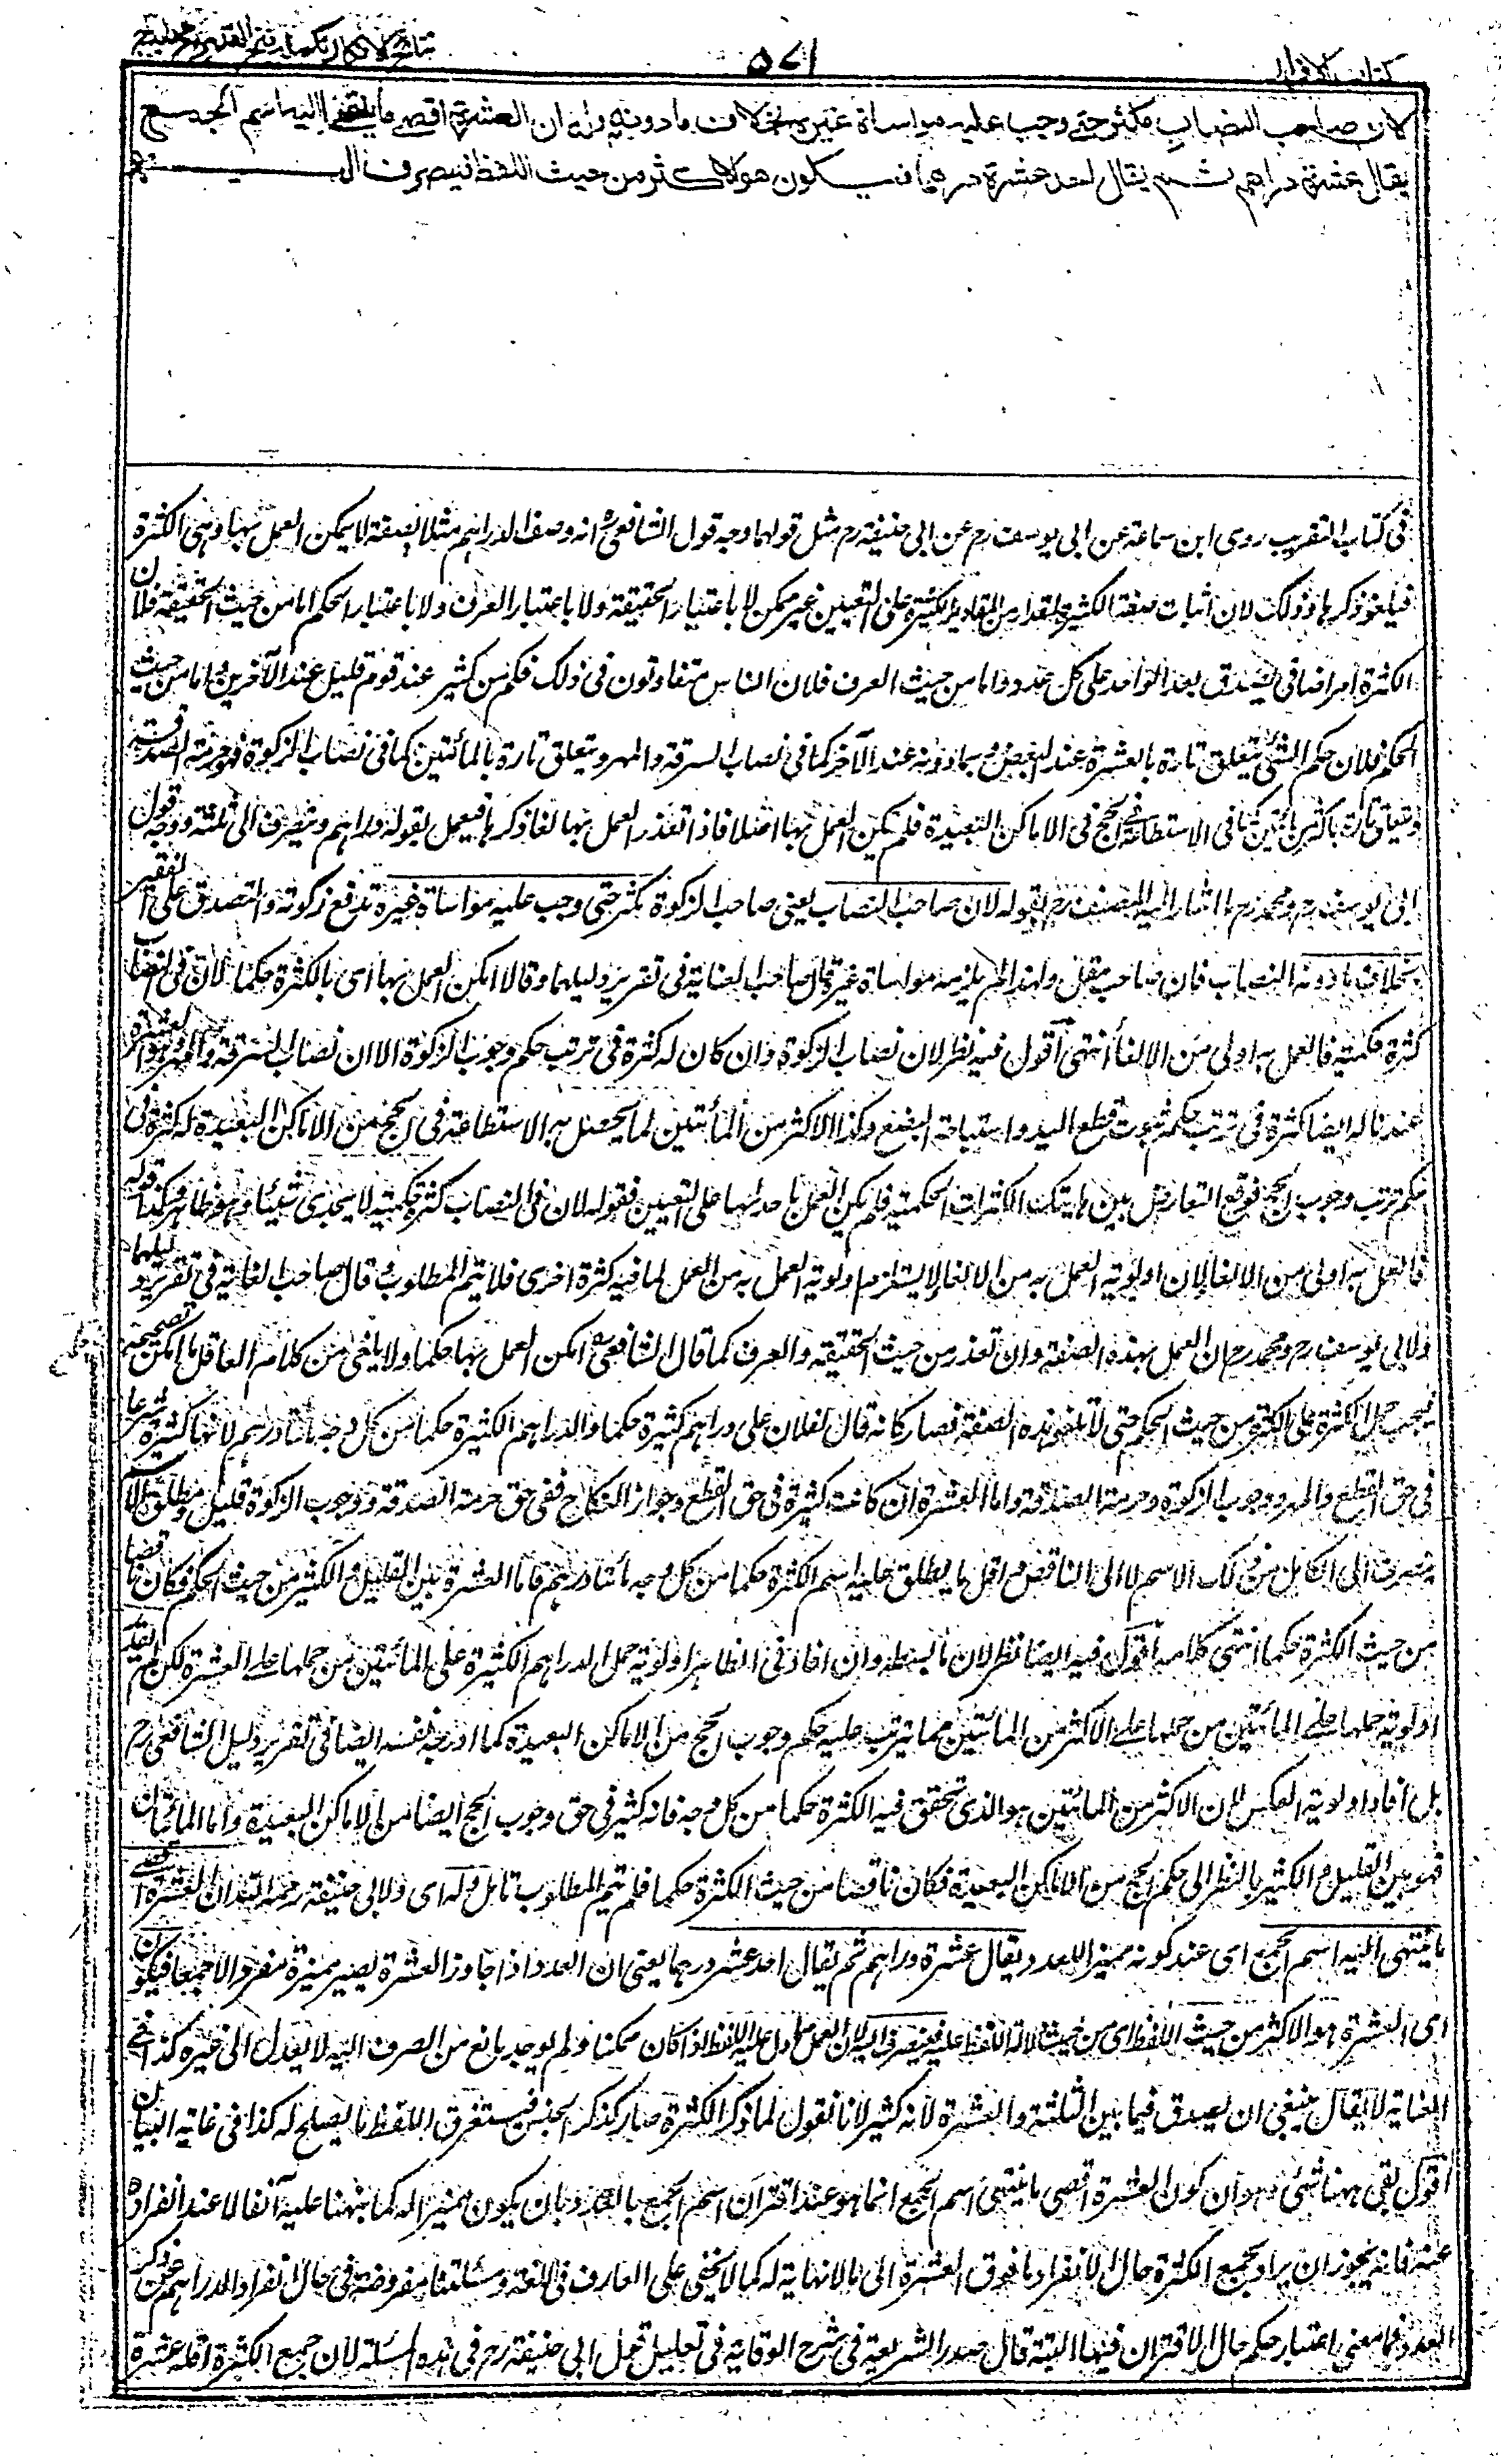 كتاب الاقرار
٥٧١
نتائج الافكار تكملة فتح القدير مع هداية
لان صاحب النصاب مكثر حتى وجب عليه مواساة غيره بخلاف ما دونه وله ان العشرة اقصى ما ينتهى اليه اسم الجمع
يقال عشرة دراهم ثم يقال احد عشرة درهما فيكون هو الاكثر من حيث اللفظ فينصرف اليه
فى كتاب التقريب روى ابن سماعة عن ابى يوسف رح عن ابى حنيفة رح مثل قولهما وجه قول الشافعى ره انه وصف الدراهم مثلا بصفة لا يمكن العمل بها وهى الكثرة
فيلغو ذكرها وذلك لان اثبات صفة الكثرة لمقدار من المقادير الكثيرة على التعيين غير ممكن لا باعتبار الحقيقة ولا باعتبار العرف ولا باعتبار الحكم اما من حيث الحقيقة فلان
الكثرة امر اضافى يصدق بعد الواحد على كل عدد واما من حيث العرف فلان الناس متفاوتون فى ذلك فكم من كثير عند قوم قليل عند الآخرين واما من حيث
الحكم فلان حكم الشئ يتعلق تارة بالعشرة عند البعض وبما دونه عند الآخر كما فى نصاب السرقة والمهر ويتعلق تارة بالمأتين كما فى نصاب الزكوة وحرمة الصدقة
ويتعلق تارة باكثر من المأتين كما فى الاستطاعة فى الحج فى الاماكن البعيدة فلم يكن العمل بها اصلا فاذا تعذر العمل بها لغا ذكرها فيعمل بقوله دراهم وينصرف الى ثلثة ووجه قول
ابى يوسف رح ومحمد رح ما اشار اليه المصنف رح بقوله لان صاحب النصاب يعنى صاحب الزكوة مكثر حتى وجب عليه مواساة غيره بدفع زكوته والتصدق على الفقير
بخلاف ما دونه النصاب فان صاحبه مقل ولهذا لم يلزمه مواساة غيره قال صاحب العناية فى تقرير دليلهما وقالا امكن العمل بها اى بالكثرة حكما لان فى النصاب
كثرة حكمية فالعمل به اولى من الالغاء انتهى اقول فيه نظر لان نصاب الزكوة وان كان له كثرة فى ترتب حكم وجوب الزكوة الا ان نصاب السرقة والمهر وهو العشرة
عندنا له ايضا كثرة فى ترتب حكم ثبوت قطع اليد واستباحة البضع وكذا الاكثر من المأتين لما يحصل به الاستطاعة فى الحج من الاماكن البعيدة له كثرة فى
حكم ترتب وجوب الحج فوقع التعارض بين هاتيك الكثرات الحكمية فلم يكن العمل باحدها على التعيين فقوله لان فى النصاب كثرة حكمية لا يجدى شيئا وهو ظاهر وكذا قوله
فالعمل به اولى من الالغاء لان اولوية العمل به من الالغاء لا يستلزم اولوية العمل به من العمل لما فيه كثرة اخرى فلا يتم المطلوب وقال صاحب الغاية فى تقرير دليلهما
ولابى يوسف رح ومحمد رح ان العمل بهذه الصفة وان تعذر من حيث الحقيقة والعرف كما قال الشافعى ره امكن العمل بها حكما ولا يلغى من كلام العاقل ما امكن تصحيحه
فيجب حمل الكثرة على الكثرة من حيث الحكم حتى لا تلغو هذه الصفة فصار كانه قال لفلان على دراهم كثيرة حكما والدراهم الكثيرة حكما من كل وجه مأتا درهم لانها كثيرة شرعا
فى حق القطع والمهر ووجوب الزكوة وحرمة الصدقة واما العشرة ان كانت كثيرة فى حق القطع وجواز النكاح ففى حق حرمة الصدقة ووجوب الزكوة قليل ومطلق الاسم
ينصرف الى الكامل من ذلك الاسم لا الى الناقص واقل ما يطلق عليه اسم الكثرة حكما من كل وجه مأتا درهم فاما العشرة بين القليل والكثير من حيث الحكم فكان ناقصا
من حيث الكثرة حكما انتهى كلامه اقول فيه ايضا نظر لان ما بسطه وان افاد فى الظاهر اولوية حمل الدراهم الكثيرة على المأتين من حملها على العشرة لكن لم يفد
اولوية حملها على المأتين من حملها على الاكثر من المأتين مما يترتب عليه حكم وجوب الحج من الاماكن البعيدة كما ادرجه نفسه ايضا فى تقرير دليل الشافعى رح
بل افاد اولوية العكس لان الاكثر من المأتين هو الذى تحقق فيه الكثرة حكما من كل وجه فانه كثير فى حق وجوب الحج ايضا من الاماكن البعيدة واما المأتان
فهو بين القليل والكثير بالنظر الى حكم الحج من الاماكن البعيدة فكان ناقصا من حيث الكثرة حكما فلم يتم المطلوب تأمل وله اى ولابى حنيفة رحمه الله ان العشرة اقصى
ما ينتهى اليه اسم الجمع اى عند كونه مميزا للعدد يقال عشرة دراهم ثم يقال احد عشر درهما يعنى ان العدد اذا جاوز العشرة يصير مميزه مفردا لا جمعا فيكون
اى العشرة هو الاكثر من حيث اللفظ اى من حيث دلالة اللفظ عليه فينصرف اليه لان العمل بما دل عليه اللفظ اذا كان ممكنا ولم يوجد مانع من الصرف اليه لا يعدل الى غيره كذا فى
العناية لا يقال ينبغى ان يصدق فيما بين الثلثة والعشرة لانه كثير لانا نقول لما ذكر الكثرة صار كذكر الجنس فيستغرق اللفظ ما يصلح له كذا فى غاية البيان
اقول بقى ههنا شئ وهو ان كون العشرة اقصى ما ينتهى اسم الجمع انما هو عند اقتران اسم الجمع بالعدد بان يكون مميزا له كما نبهنا عليه آنفا لا عند انفراده
عنه فانه يجوز ان يراد بجمع الكثرة حال الانفراد ما فوق العشرة الى ما لا نهاية له كما لا يخفى على العارف فى اللغة ومسئلتنا مفروضة فى حال انفراد الدراهم عن ذكر
العدد فما معنى اعتبار حكم حال الاقتران فيها البتة قال صدر الشريعة فى شرح الوقاية فى تعليل قول ابى حنيفة رح فى هذه المسئلة لان جمع الكثرة اقله عشرة